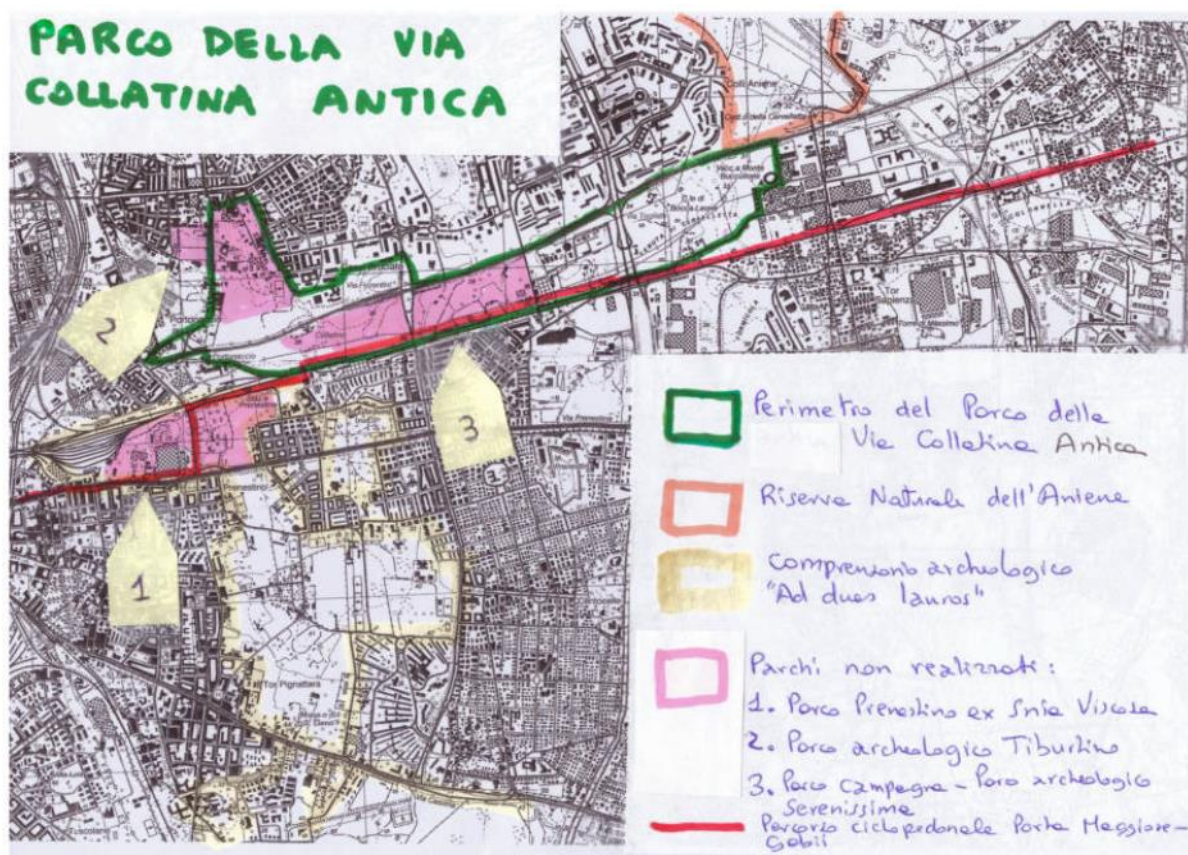 PARCO DELLA VIA
COLLATINA ANTICA
Colli Aniene
Tor Sapienza
Via Prenestina
Tor Pignattara
Tuscolano
2
3
1
Perimetro del Parco della
Via Collatina Antica
Riserva Naturale dell'Aniene
Comprensorio archeologico
"Ad duas lauros"
Parchi non realizzati:
1. Parco Prenestino ex Snia Viscosa
2. Parco archeologico Tiburtino
3. Parco Campagna - Parco archeologico
Serenissima
Percorso ciclopedonale Porta Maggiore-
Gabii